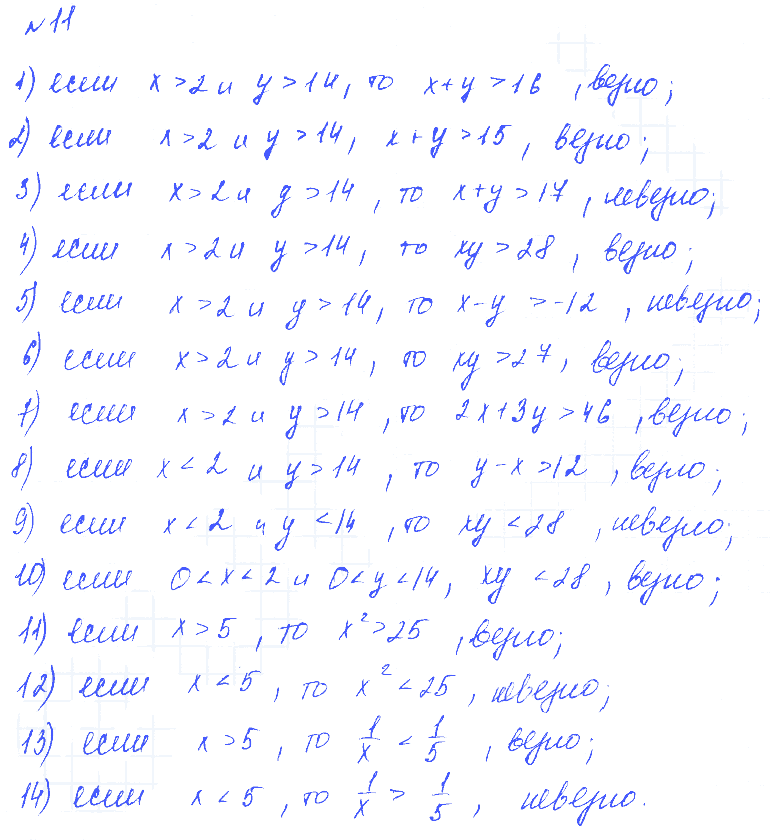 №11
1) если x > 2 и y > 14, то x+y > 16, верно;
2) если x > 2 и y > 14, x+y > 15, верно;
3) если x > 2 и y > 14, то x+y > 17, неверно;
4) если x > 2 и y > 14, то xy > 28, верно;
5) если x > 2 и y > 14, то x-y > -12, неверно;
6) если x > 2 и y > 14, то xy > 27, верно;
7) если x > 2 и y > 14, то 2x+3y > 46, верно;
8) если x < 2 и y > 14, то y-x > 12, верно;
9) если x < 2 и y < 14, то xy < 28, неверно;
10) если 0 < x < 2 и 0 < y < 14, xy < 28, верно;
11) если x > 5, то x² > 25, верно;
12) если x < 5, то x² < 25, неверно;
13) если x > 5, то 1/x < 1/5, верно;
14) если x < 5, то 1/x > 1/5, неверно.